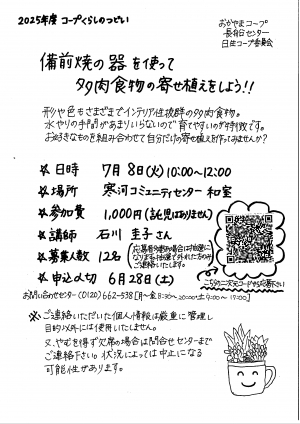 2025年度 コープくらしのつどい
おかやまコープ
長船センター
日生コープ委員会
備前焼の器を使って
多肉食物の寄せ植えをしよう!!
形や色もさまざまでインテリア性抜群の多肉食物。
水やりの手間があまりいらないので育てやすいのが特徴です。
お好きなものを組み合わせて自分だけの寄せ植えを作ってみませんか?
☆ 日時 7月8日(火)10:00~12:00
☆ 場所 寒河コミュニティセンター 和室
☆ 参加費 1,000円(託児はありません)
☆ 講師 石川 圭子さん
☆ 募集人数 12名
(応募者多数の場合は抽選に
なります。抽選で外れた方のみ
ご連絡いたします。)
☆ 申込〆切 6月28日(土)
こちらの二次元コードからご応募下さい
お問い合わせセンター(0120)662-538 [月~金 8:30~20:00 土 9:00~17:00]
※ご連絡いただいた個人情報は厳重に管理し
目的以外には使用いたしません。
又、やむを得ず欠席の場合は問合せセンターまで
ご連絡下さい。状況によっては中止になる
可能性があります。